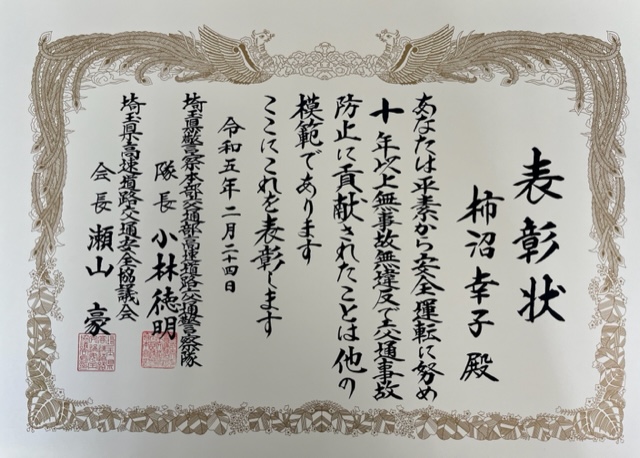 表彰状
柿沼幸子 殿
あなたは平素から安全運転に努め
十年以上無事故無違反で交通事故
防止に貢献されたことは他の
模範であります
ここにこれを表彰します
令和五年二月二十四日
埼玉県警察本部交通部高速道路交通警察隊
隊長 小林徳明
埼玉県高速道路交通安全協議会
会長 瀬山 豪